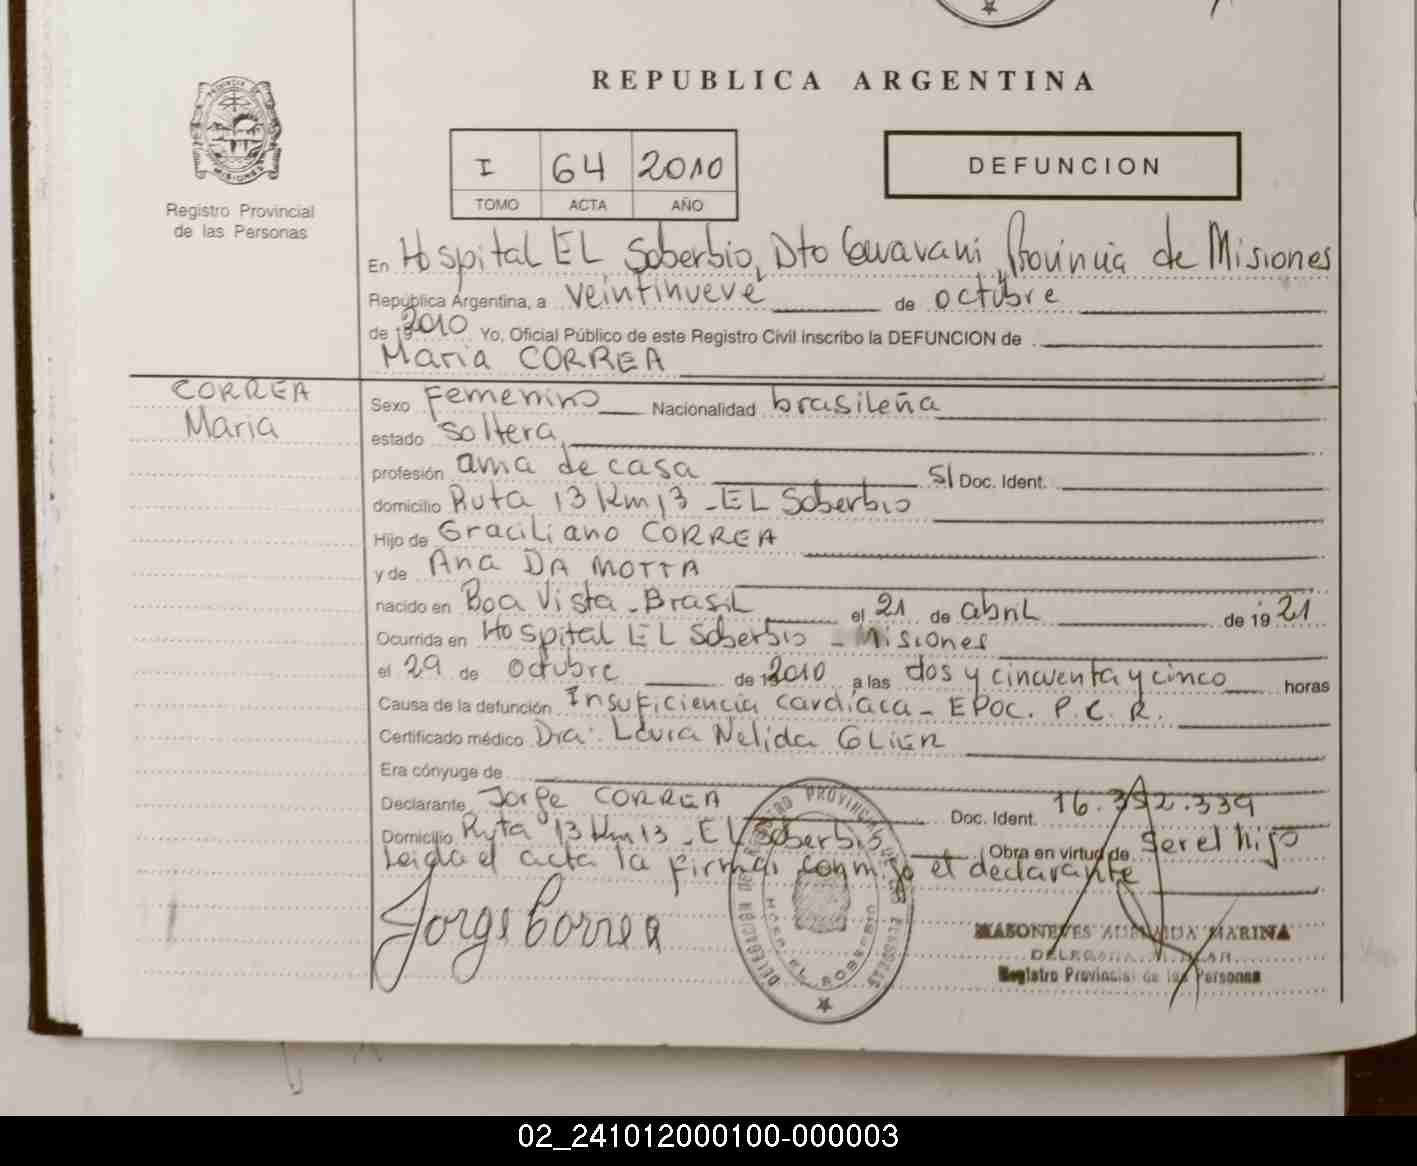 REPUBLICA ARGENTINA
I 64 2010
TOMO ACTA AÑO
DEFUNCION
PROVINCIA DE MISIONES
Registro Provincial
de las Personas
En Hospital EL Soberbio, Dto Guarani, Provincia de Misiones
República Argentina, a veintinueve de octubre
de 2010 Yo, Oficial Público de este Registro Civil inscribo la DEFUNCION de
Maria CORREA
CORREA
Maria
Sexo Femenino Nacionalidad brasileña
estado soltera
profesión ama de casa S/ Doc. Ident.
domicilio Ruta 13 Km 13 - EL Soberbio
Hijo de Graciliano CORREA
y de Ana DA MOTTA
nacido en Boa Vista - Brasil el 21 de abril de 19 21
Ocurrida en Hospital EL Soberbio - Misiones
el 29 de octubre de 2010 a las dos y cincuenta y cinco horas
Causa de la defunción Insuficiencia cardíaca - EPOC. P.C.R.
Certificado médico Dra: Laura Nelida
Era cónyuge de
Declarante Jorge CORREA Doc. Ident. 16.352.339
Domicilio Ruta 13 Km 13 - EL Soberbio Obra en virtud de ser el hijo
Leída el acta la firma conmigo el declarante
Jorge Correa
MARINA
Registro Provincial de las Personas
02_241012000100-000003